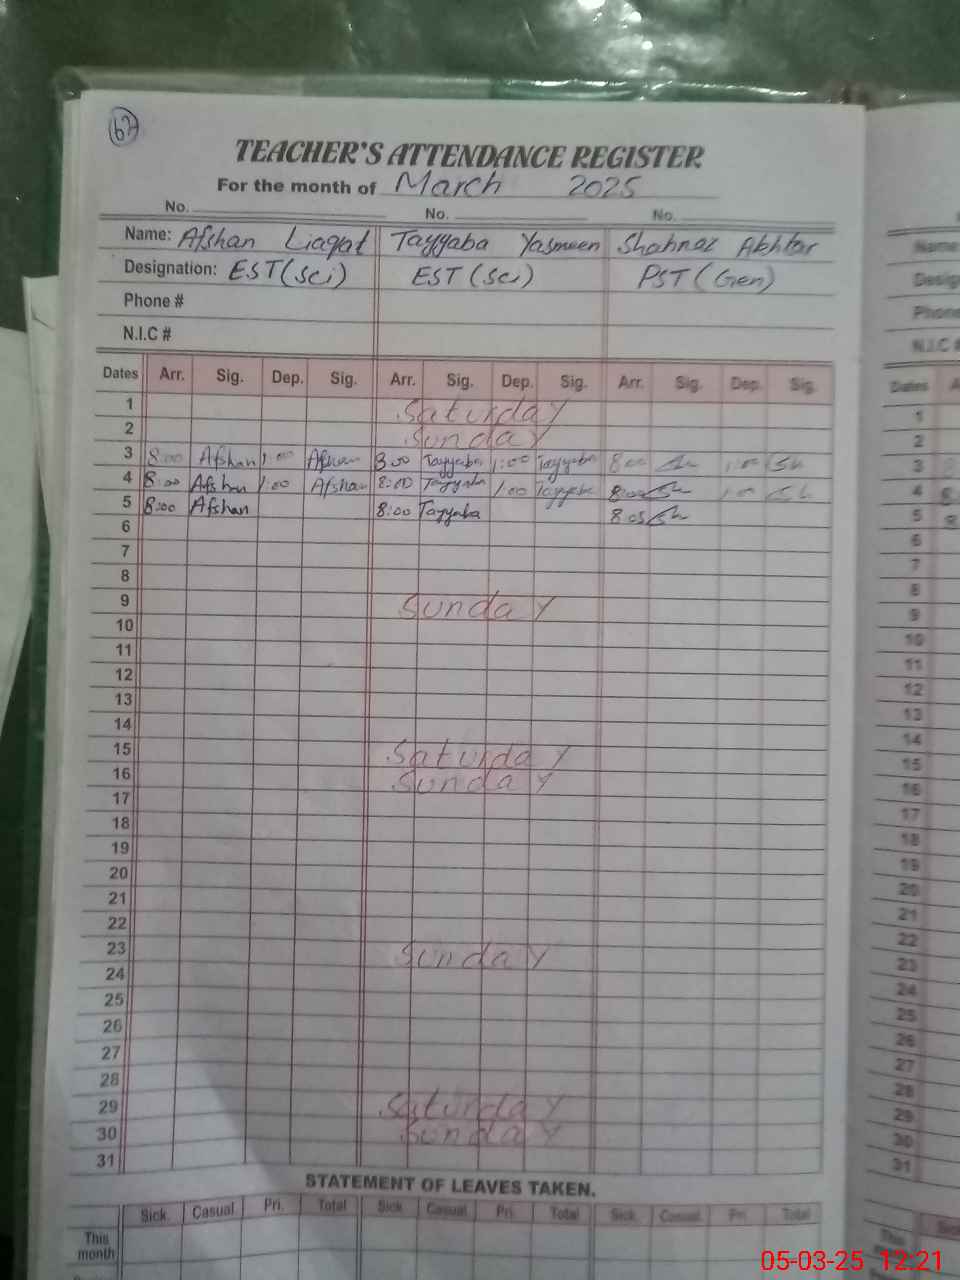 67
TEACHER'S ATTENDANCE REGISTER
For the month of March 2025
No. No. No.
Name: Afshan Liaqat Tayyaba Yasmeen Shahnaz Akhtar
Designation: EST (Sci) EST (Sci) PST (Gen)
Phone #
N.I.C #
Dates Arr. Sig. Dep. Sig. Arr. Sig. Dep. Sig. Arr. Sig. Dep. Sig.
1 Saturday
2 Sunday
3 8:00 Afshan 1:00 Afshan 8:00 Tayyaba 1:00 Tayyaba 8:00 Sh 1:00 Sh
4 8:00 Afshan 1:00 Afshan 8:00 Tayyaba 1:00 Tayyaba 8:00 Sh 1:00 Sh
5 8:00 Afshan 8:00 Tayyaba 8:05 Sh
6
7
8
9 Sunday
10
11
12
13
14
15 Saturday
16 Sunday
17
18
19
20
21
22
23 Sunday
24
25
26
27
28
29 Saturday
30 Sunday
31
STATEMENT OF LEAVES TAKEN.
Sick. Casual. Pri. Total Sick Casual. Pri. Total Sick. Casual. Pri. Total
This month
Name
Designation
Phone
N.I.C #
Dates
1
2
3
4
5
6
7
8
9
10
11
12
13
14
15
16
17
18
19
20
21
22
23
24
25
26
27
28
29
30
31
05-03-25 12:21